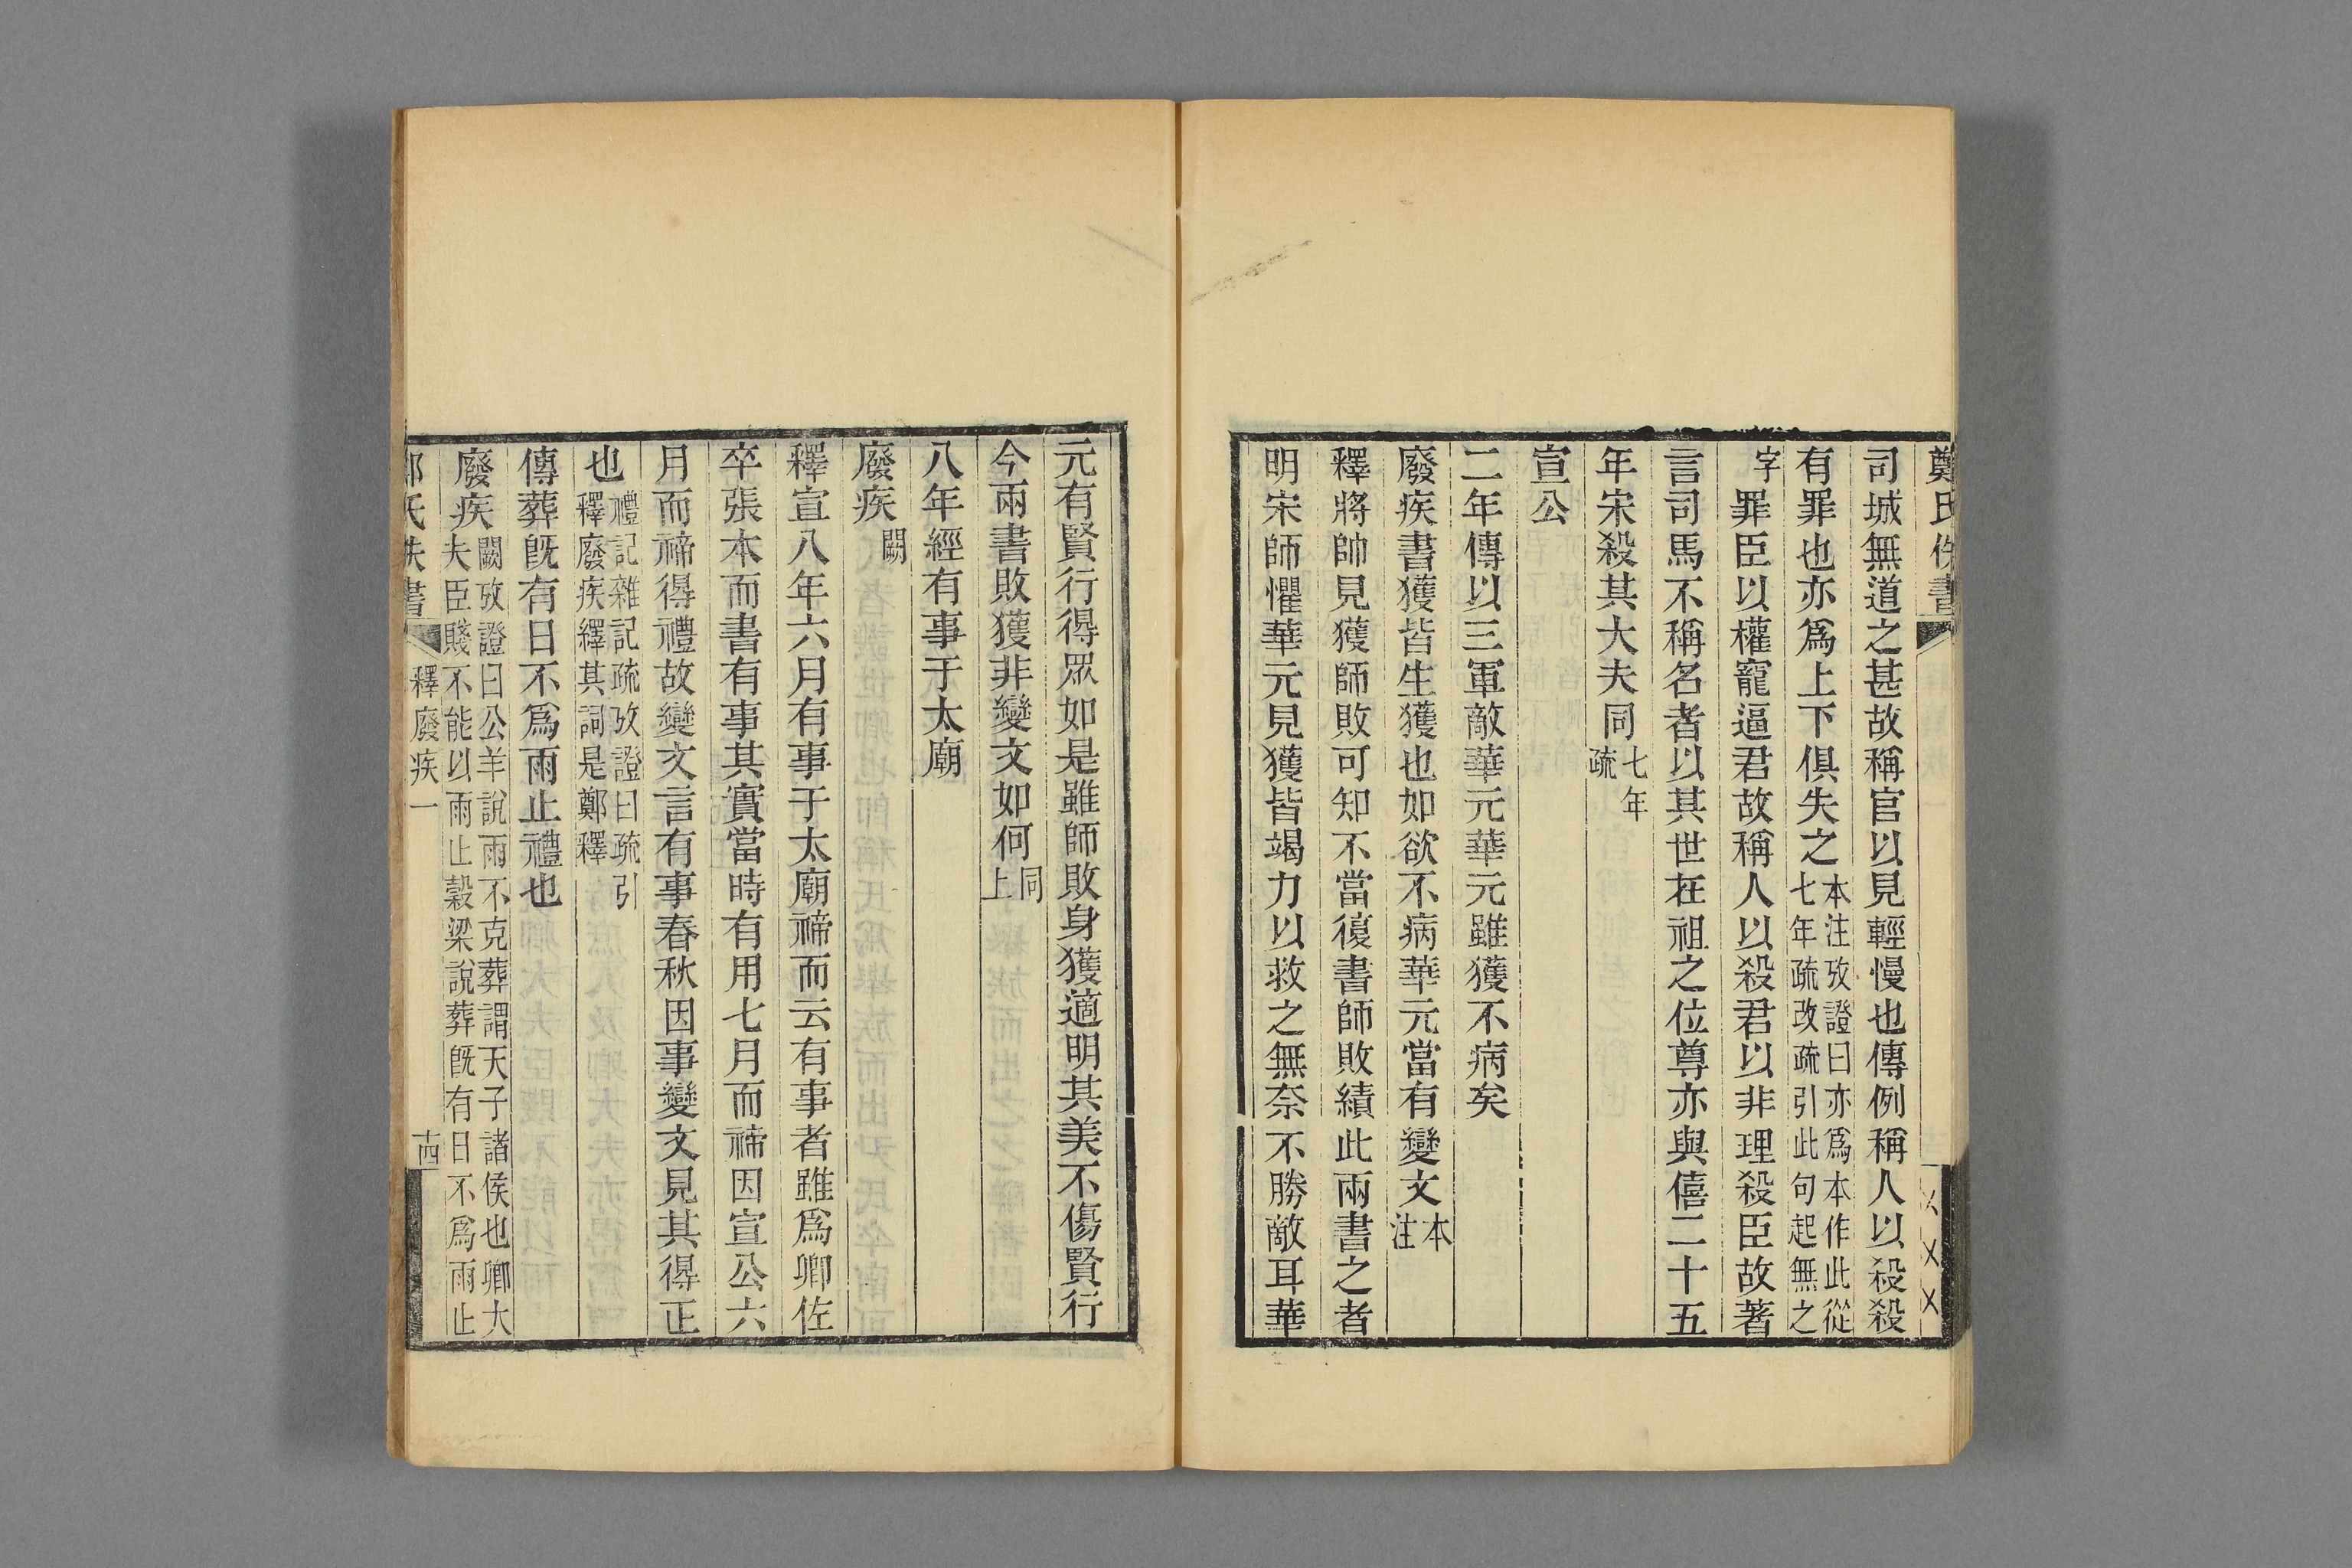 鄭氏佚書
司城無道之甚故稱官以見輕慢也傳例稱人以殺殺
有罪也亦爲上下俱失之本注攷證曰亦爲本作此從七年疏改疏引此句起無之
字罪臣以權寵逼君故稱人以殺君以非理殺臣故著
言司馬不稱名者以其世在祖之位尊亦與僖二十五
年宋殺其大夫同七年疏
宣公
二年傳以三軍敵華元華元雖獲不病矣
廢疾書獲皆生獲也如欲不病華元當有變文本注
釋將帥見獲師敗可知不當復書師敗績此兩書之者
明宋師懼華元見獲皆竭力以救之無奈不勝敵耳華
元有賢行得眾如是雖師敗身獲適明其美不傷賢行
今兩書敗獲非變文如何同上
八年經有事于太廟
廢疾闕
釋宣八年六月有事于太廟禘而云有事者雖爲卿佐
卒張本而書有事其實當時有用七月而禘因宣公六
月而禘得禮故變文言有事春秋因事變文見其得正
也禮記雜記疏攷證曰疏引釋廢疾繹其詞是鄭釋
傳葬旣有日不爲雨止禮也
廢疾闕攷證曰公羊說雨不克葬謂天子諸侯也卿大夫臣賤不能以雨止穀梁說葬旣有日不爲雨止
鄭氏佚書 釋廢疾一 十四